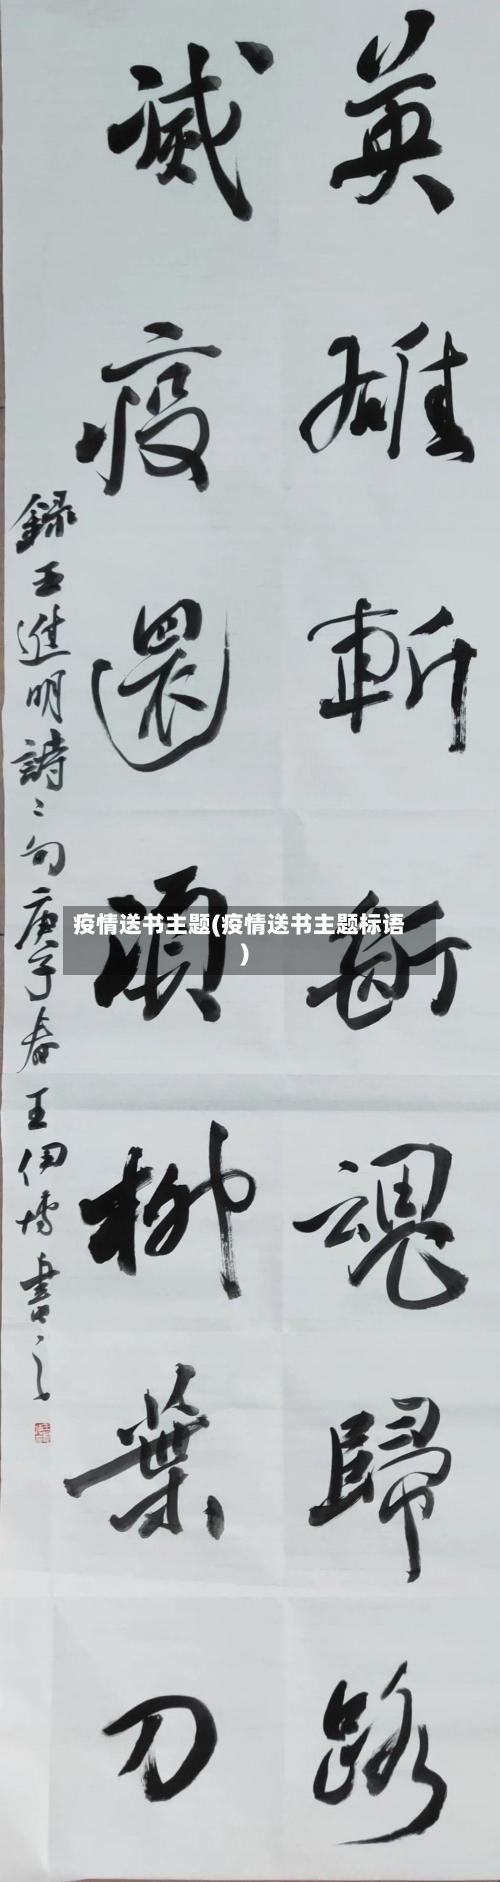 英雄斬斷魂歸路
滅疫還須柳葉刀
錄王進明詩二句庚子春王伊博書之
疫情送书主题(疫情送书主题标语
)